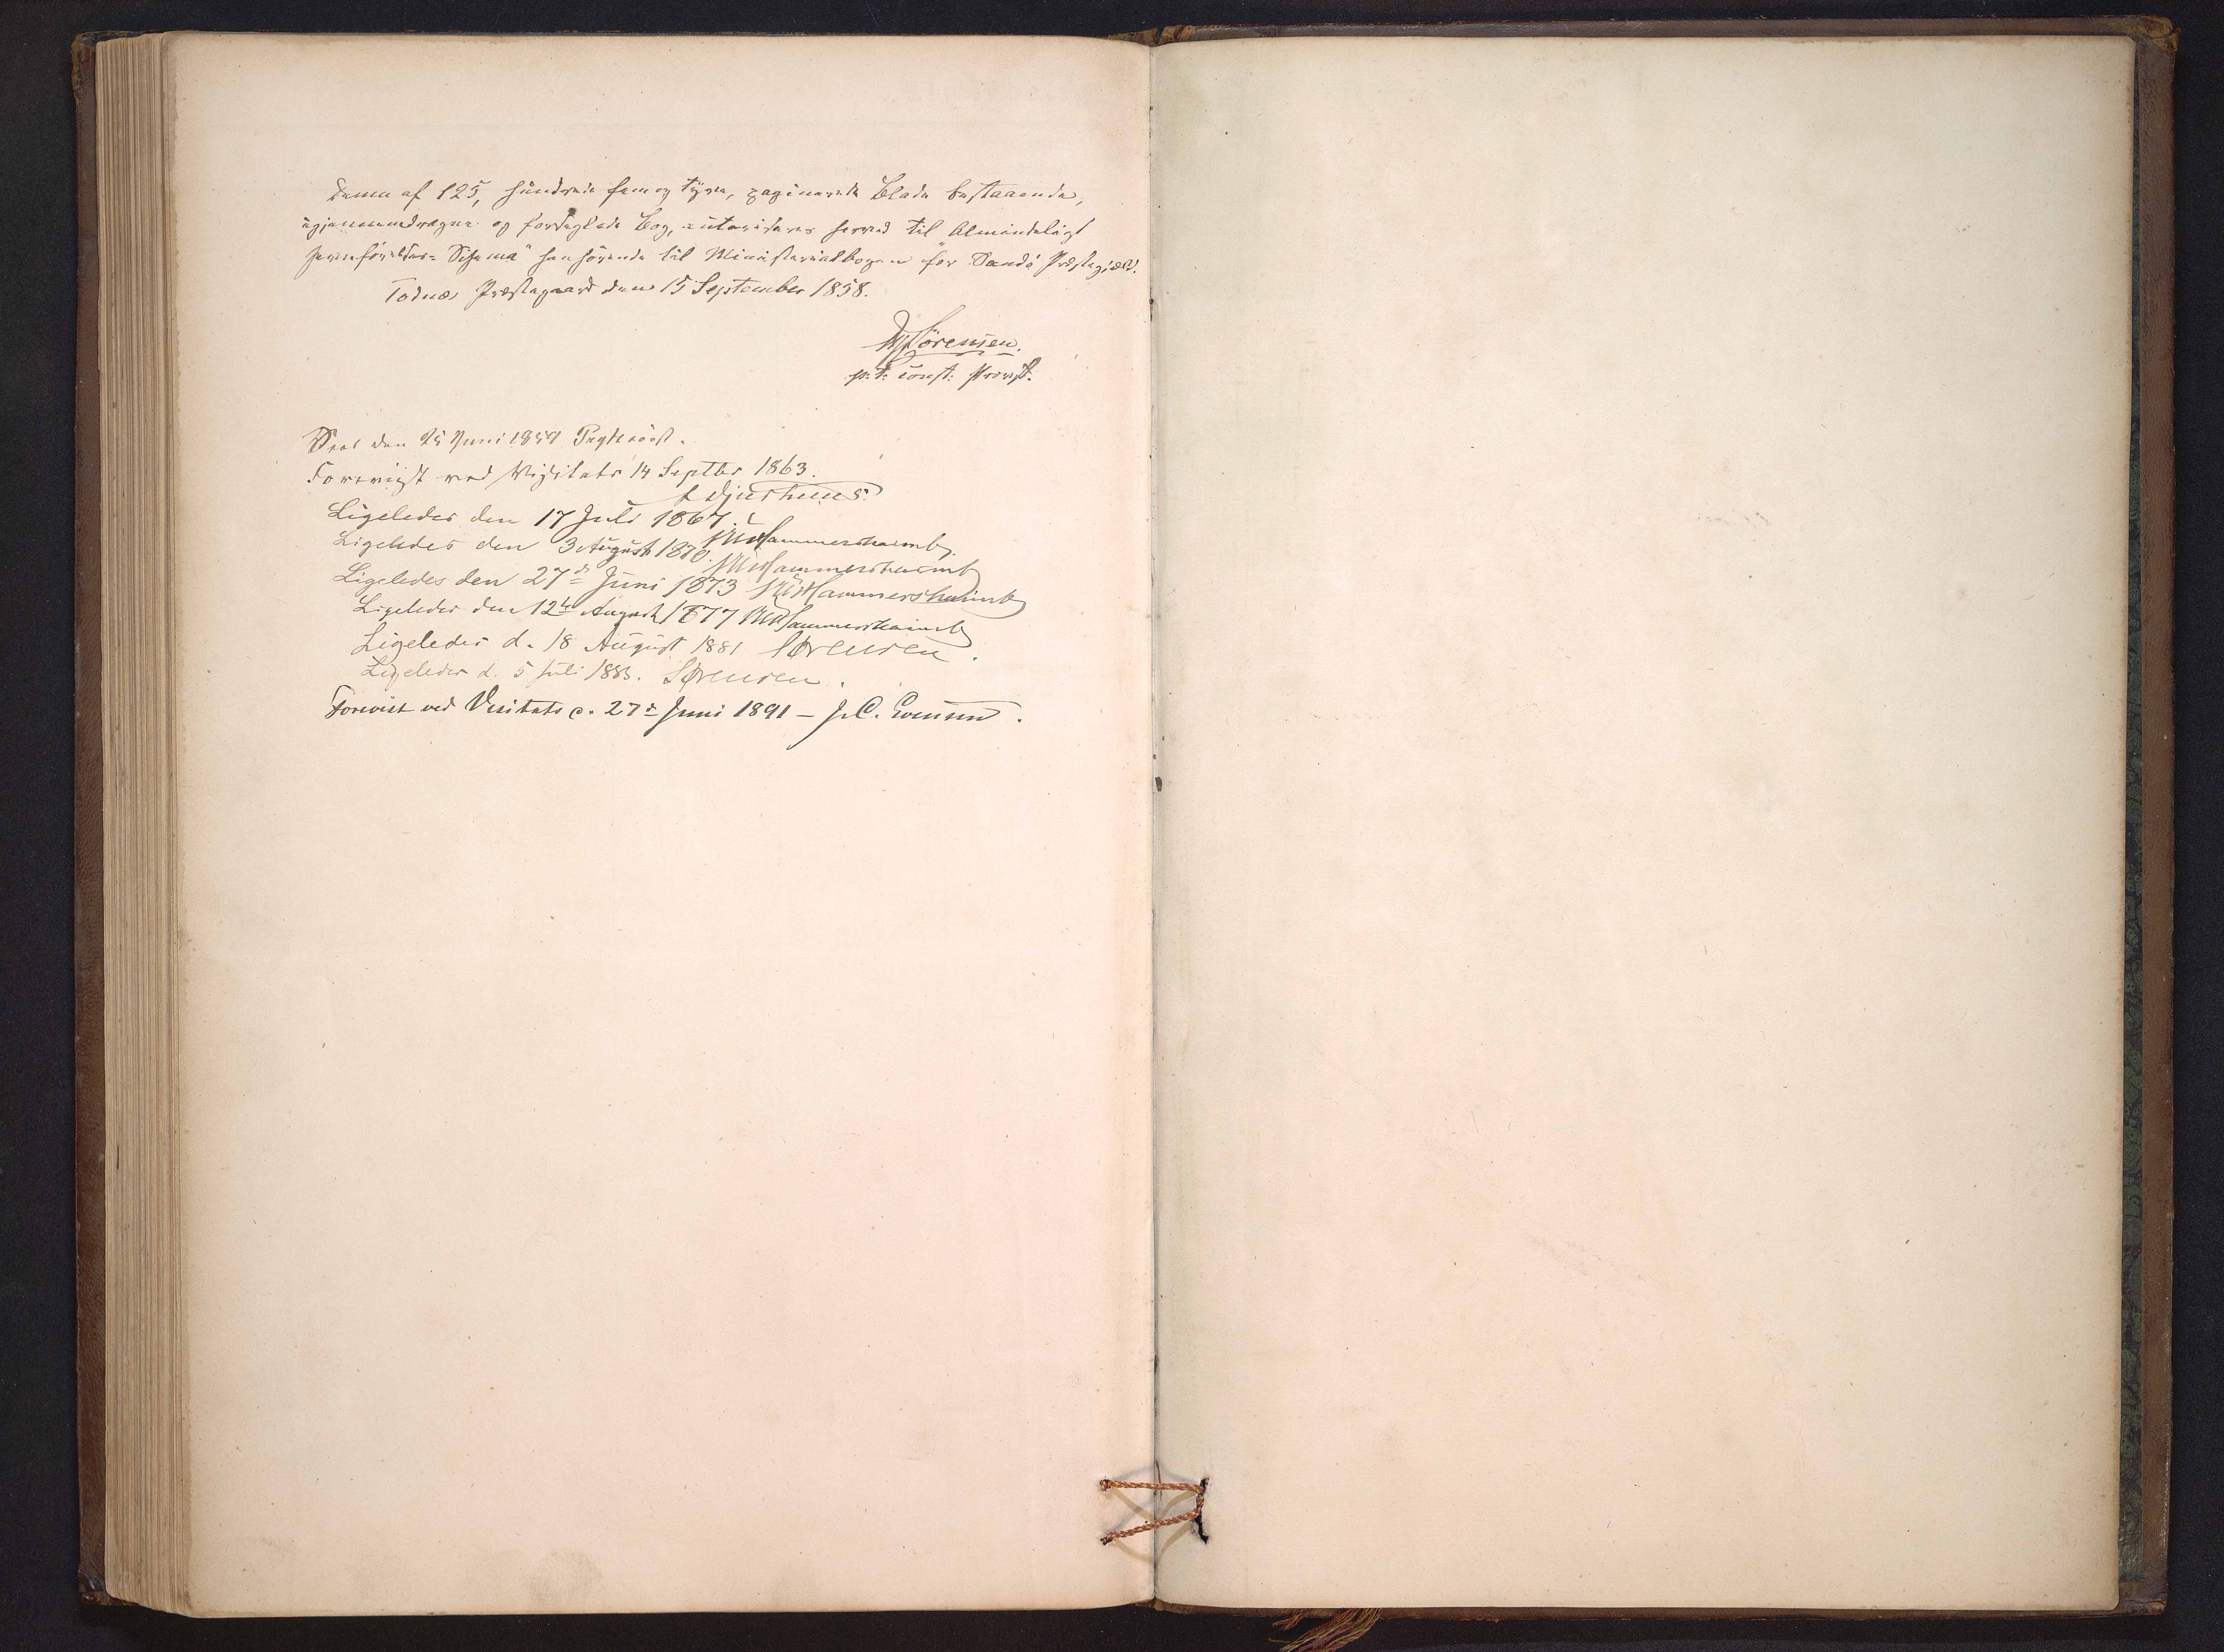 Denne af 125, hundrede fem og tyve, paginerede Blade bestaaende,
igjennemdragne og forseglede Bog, autoriseres herved til Almindeligt
Jevnførelses-Schema" henhørende til Ministerialbogen for Sandø Præstegjæld.
Todnæs Præstegaard den 15 September 1858.
Sørensen.
p: t: const: Provst.
Seet den 25 Juni 1859
Foreviist ved Visitats 14 Septbr 1863.
Djurhuus
Ligeledes den 17 Juli 1867. VUHammershaimb.
Ligeledes den 3 August 1870. VUHammershaimb
Ligeledes den 27de Juni 1873 VUHammershaimb
Ligeledes den 12te August 1877 VUHammershaimb
Ligeledes d. 18 August 1881 Sørensen.
Ligeledes d. 5 Juli 1883. Sørensen.
Forevist ved Visitats d. 27de Juni 1891 – J.C. Evensen.